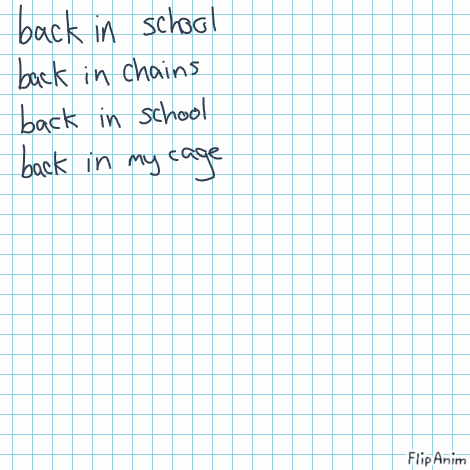 back in school
back in chains
back in school
back in my cage
FlipAnim